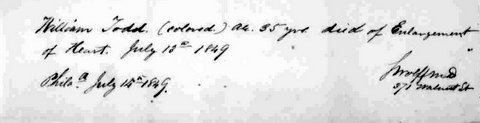 William Todd. (colored.) ae. 35 yrs died of Enlargement
of Heart. July 13th 1849
Philaa July 14th 1849.
Wolff MD
Walnut St